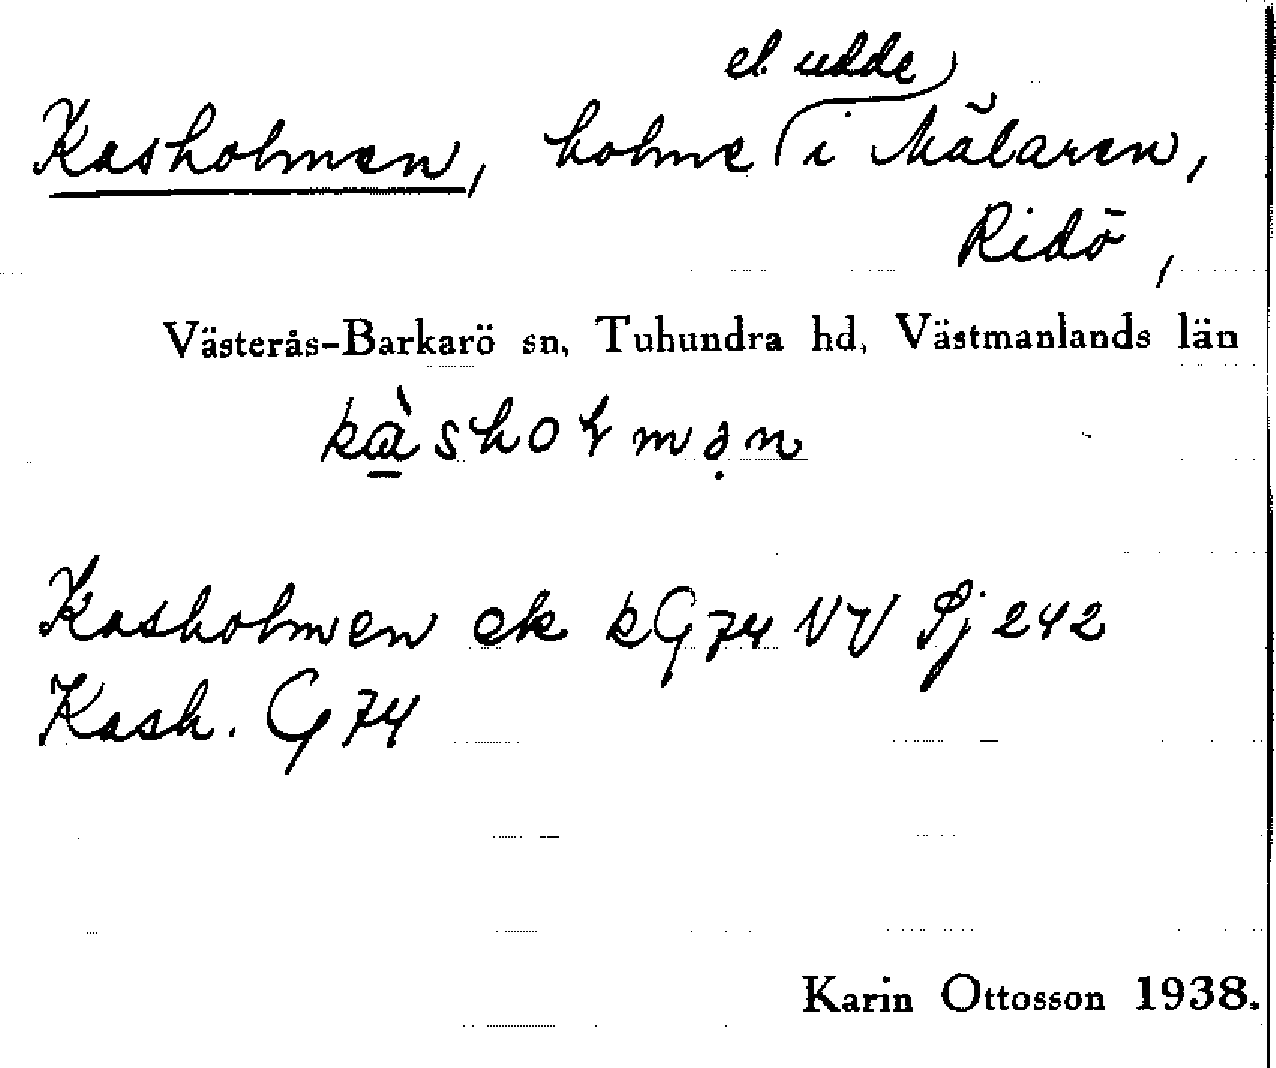 el. udde
Kasholmen, holme i Mälaren,
Ridö,
Västerås-Barkarö sn, Tuhundra hd, Västmanlands län
Kasholmen ek kG74 NV Sj 242
Kash. G74
Karin Ottosson 1938.